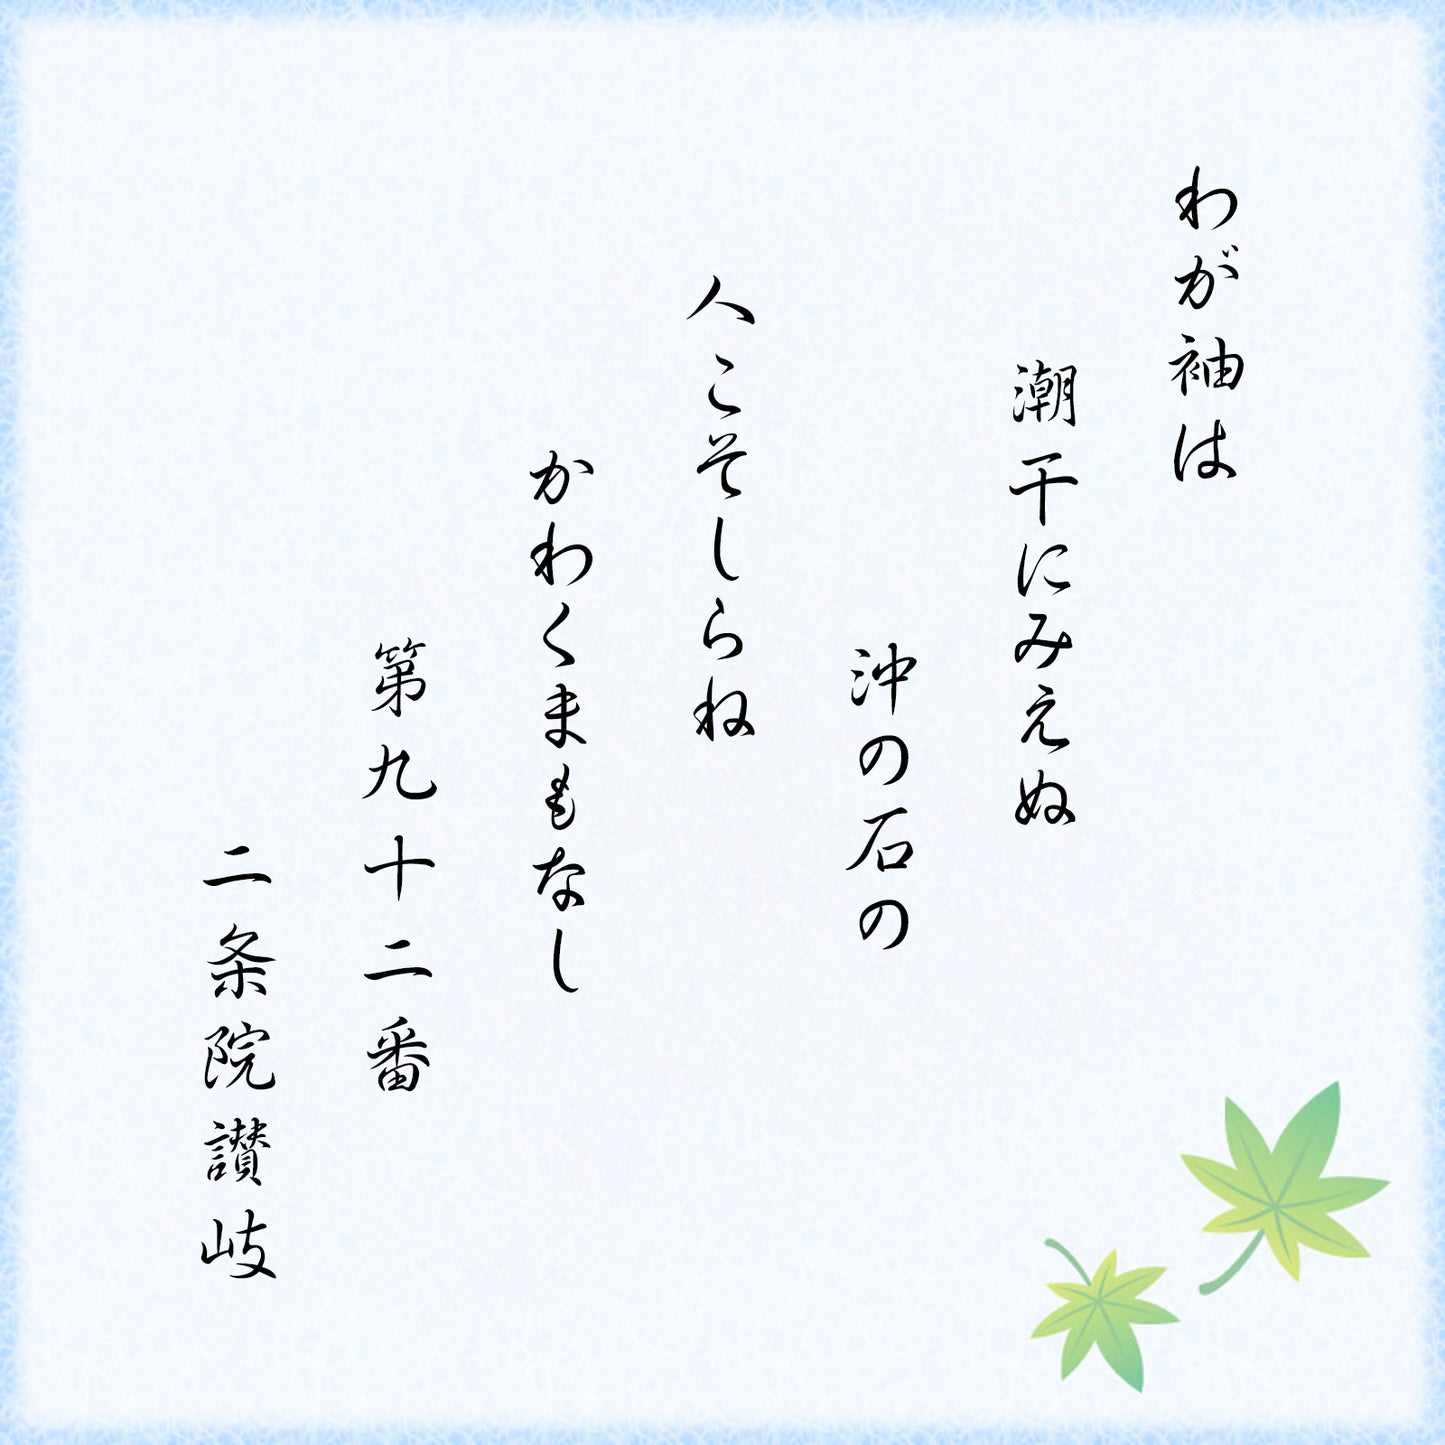 わが袖は
潮干にみえぬ
沖の石の
人こそしらね
かわくまもなし
第九十二番
二条院讃岐